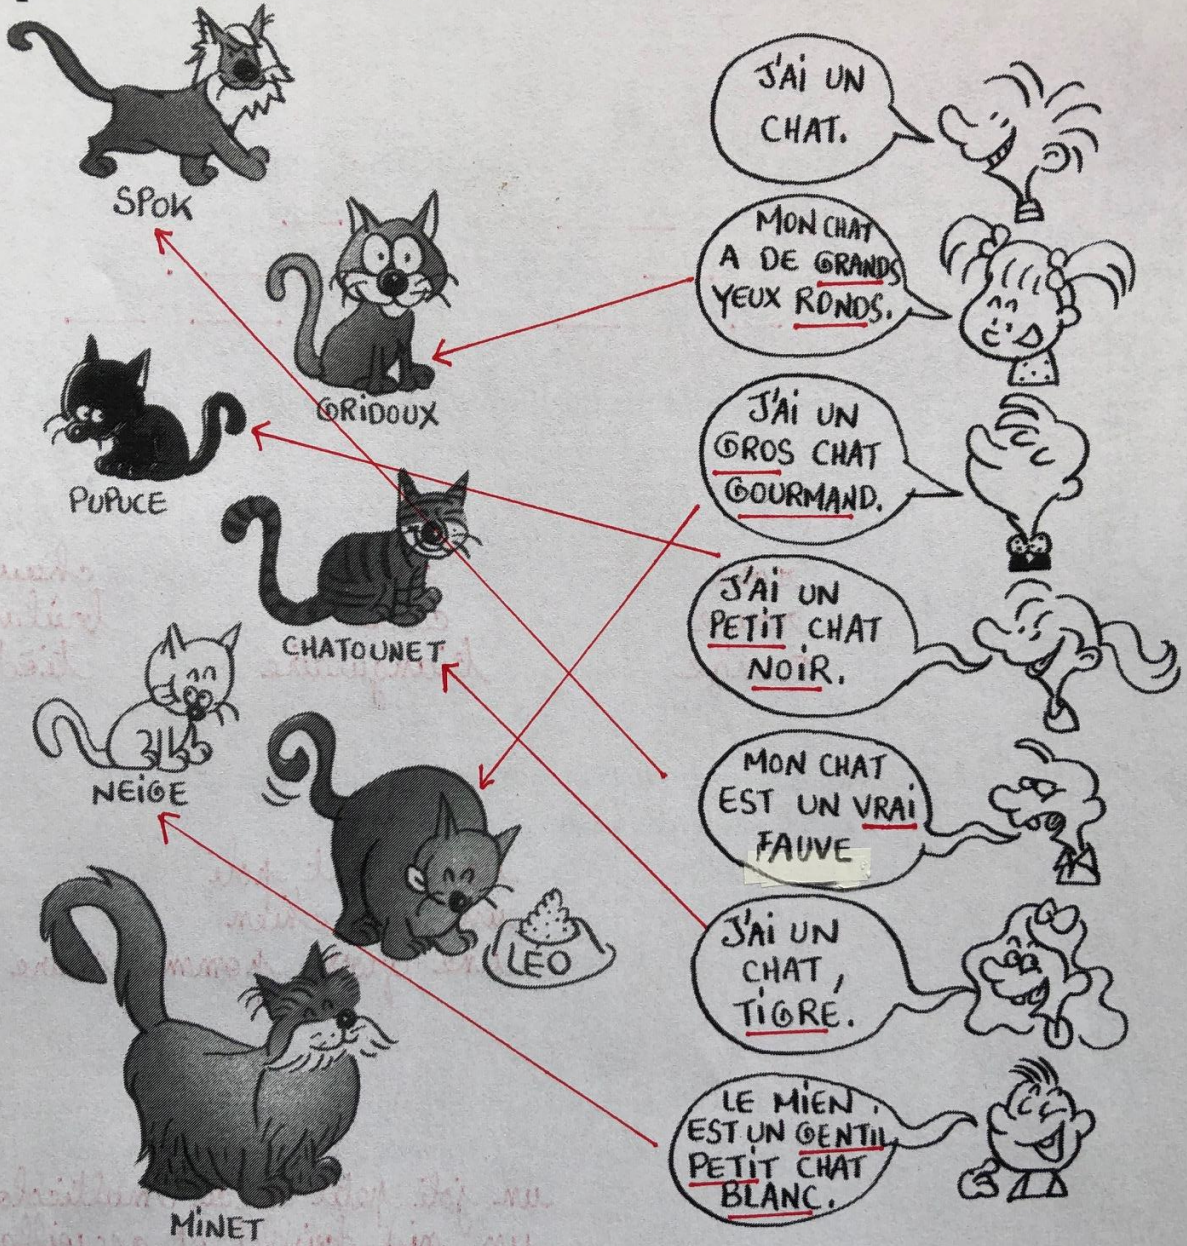 SPOK
GRIDOUX
PUPUCE
CHATOUNET
NEIGE
LEO
MINET
J'AI UN
CHAT.
MON CHAT
A DE GRANDS
YEUX RONDS.
J'AI UN
GROS CHAT
GOURMAND.
J'AI UN
PETIT CHAT
NOIR.
MON CHAT
EST UN VRAI
FAUVE
J'AI UN
CHAT,
TIGRE.
LE MIEN
EST UN GENTIL
PETIT CHAT
BLANC.